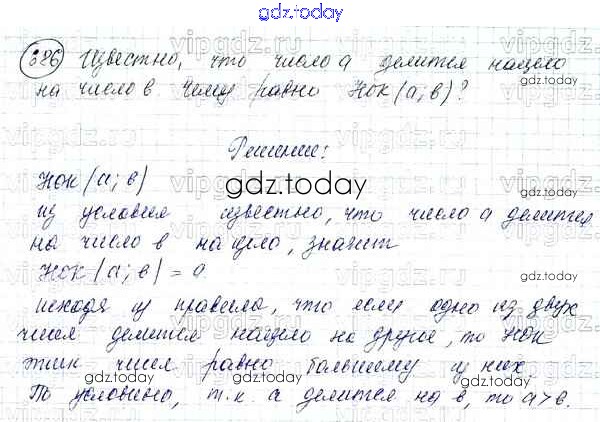 gdz.today
386 Известно, что число а делится нацело
на число в. Чему равно НОК(а;в)?
gdz.today
Решение:
НОК(а;в)
gdz.today
из условия известно, что число а делится
на число в нацело, значит
НОК(а;в) = а
исходя из правила, что если одно из двух
чисел делится нацело на другое, то НОК
этих чисел равно большему из них
gdz.today gdz.today gdz.today
По условию, т.к. а делится на в, то а>в.